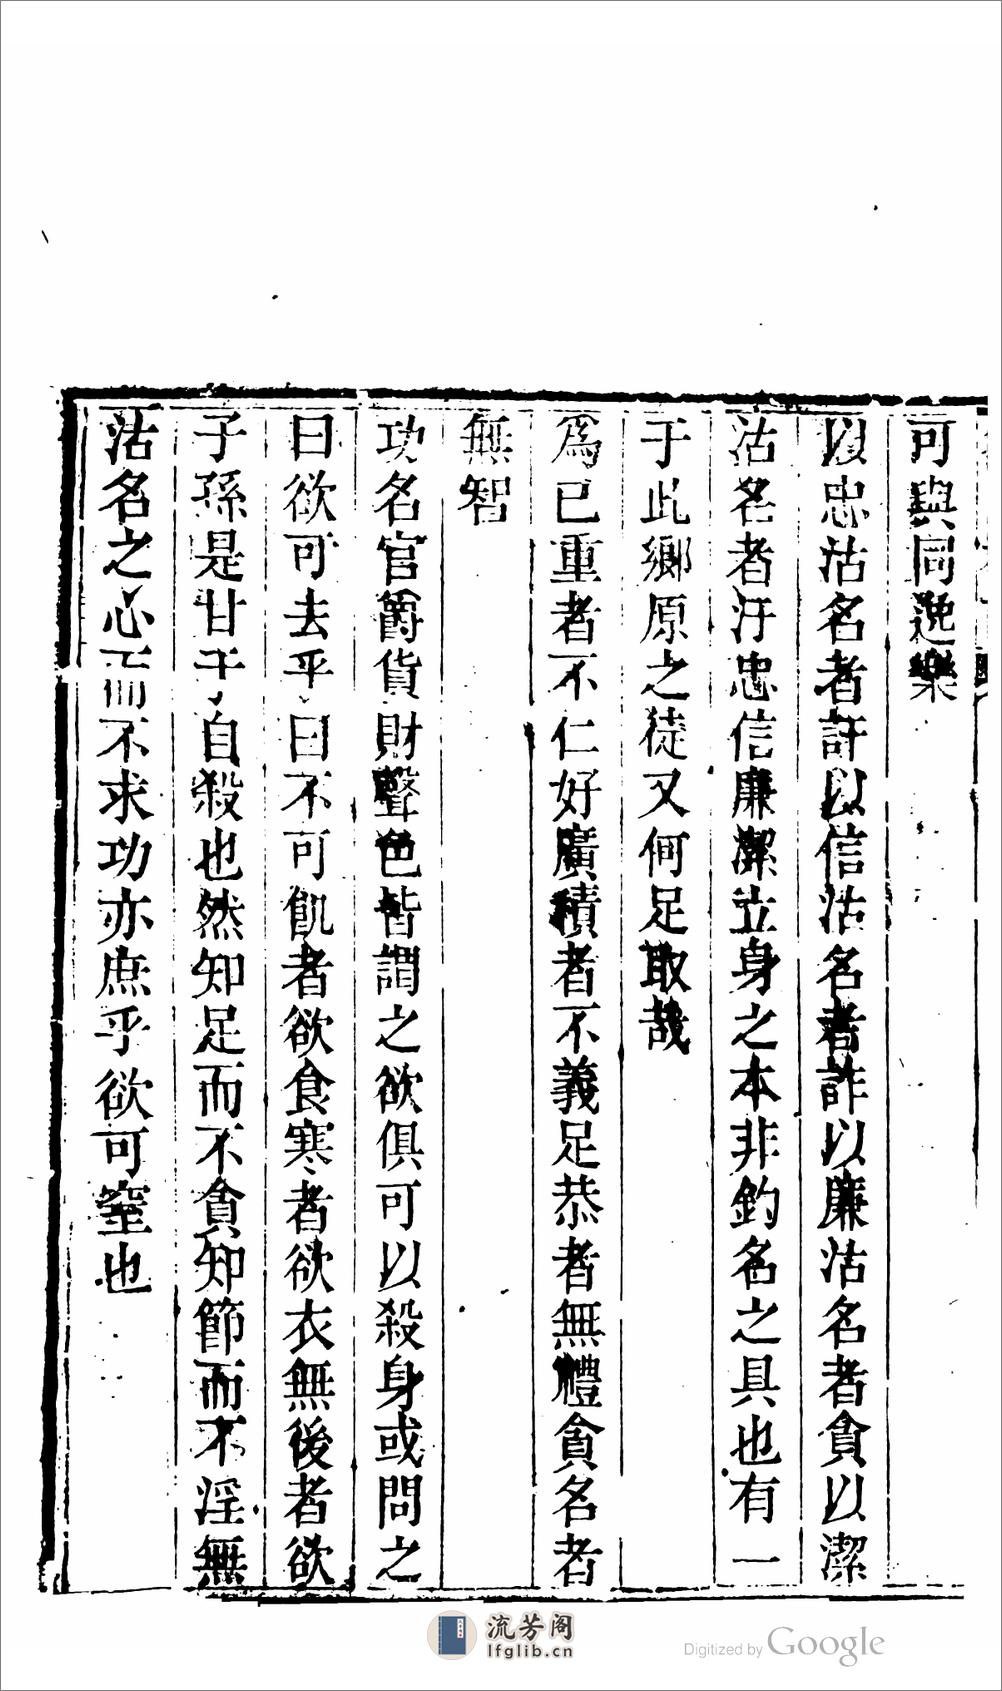 可與同逸樂
以忠沽名者訐以信沽名者詐以廉沽名者貪以潔
沽名者汙忠信廉潔立身之本非釣名之具也有一
于此鄉原之徒又何足取哉
爲已重者不仁好廣積者不義足恭者無禮貪名者
無智
功名官爵貨財聲色皆謂之欲俱可以殺身或問之
曰欲可去乎曰不可飢者欲食寒者欲衣無後者欲
子孫是甘于自殺也然知足而不貪知節而不淫無
沽名之心而不求功亦庶乎欲可窒也
流芳阁
lfglib.cn
Digitized by Google